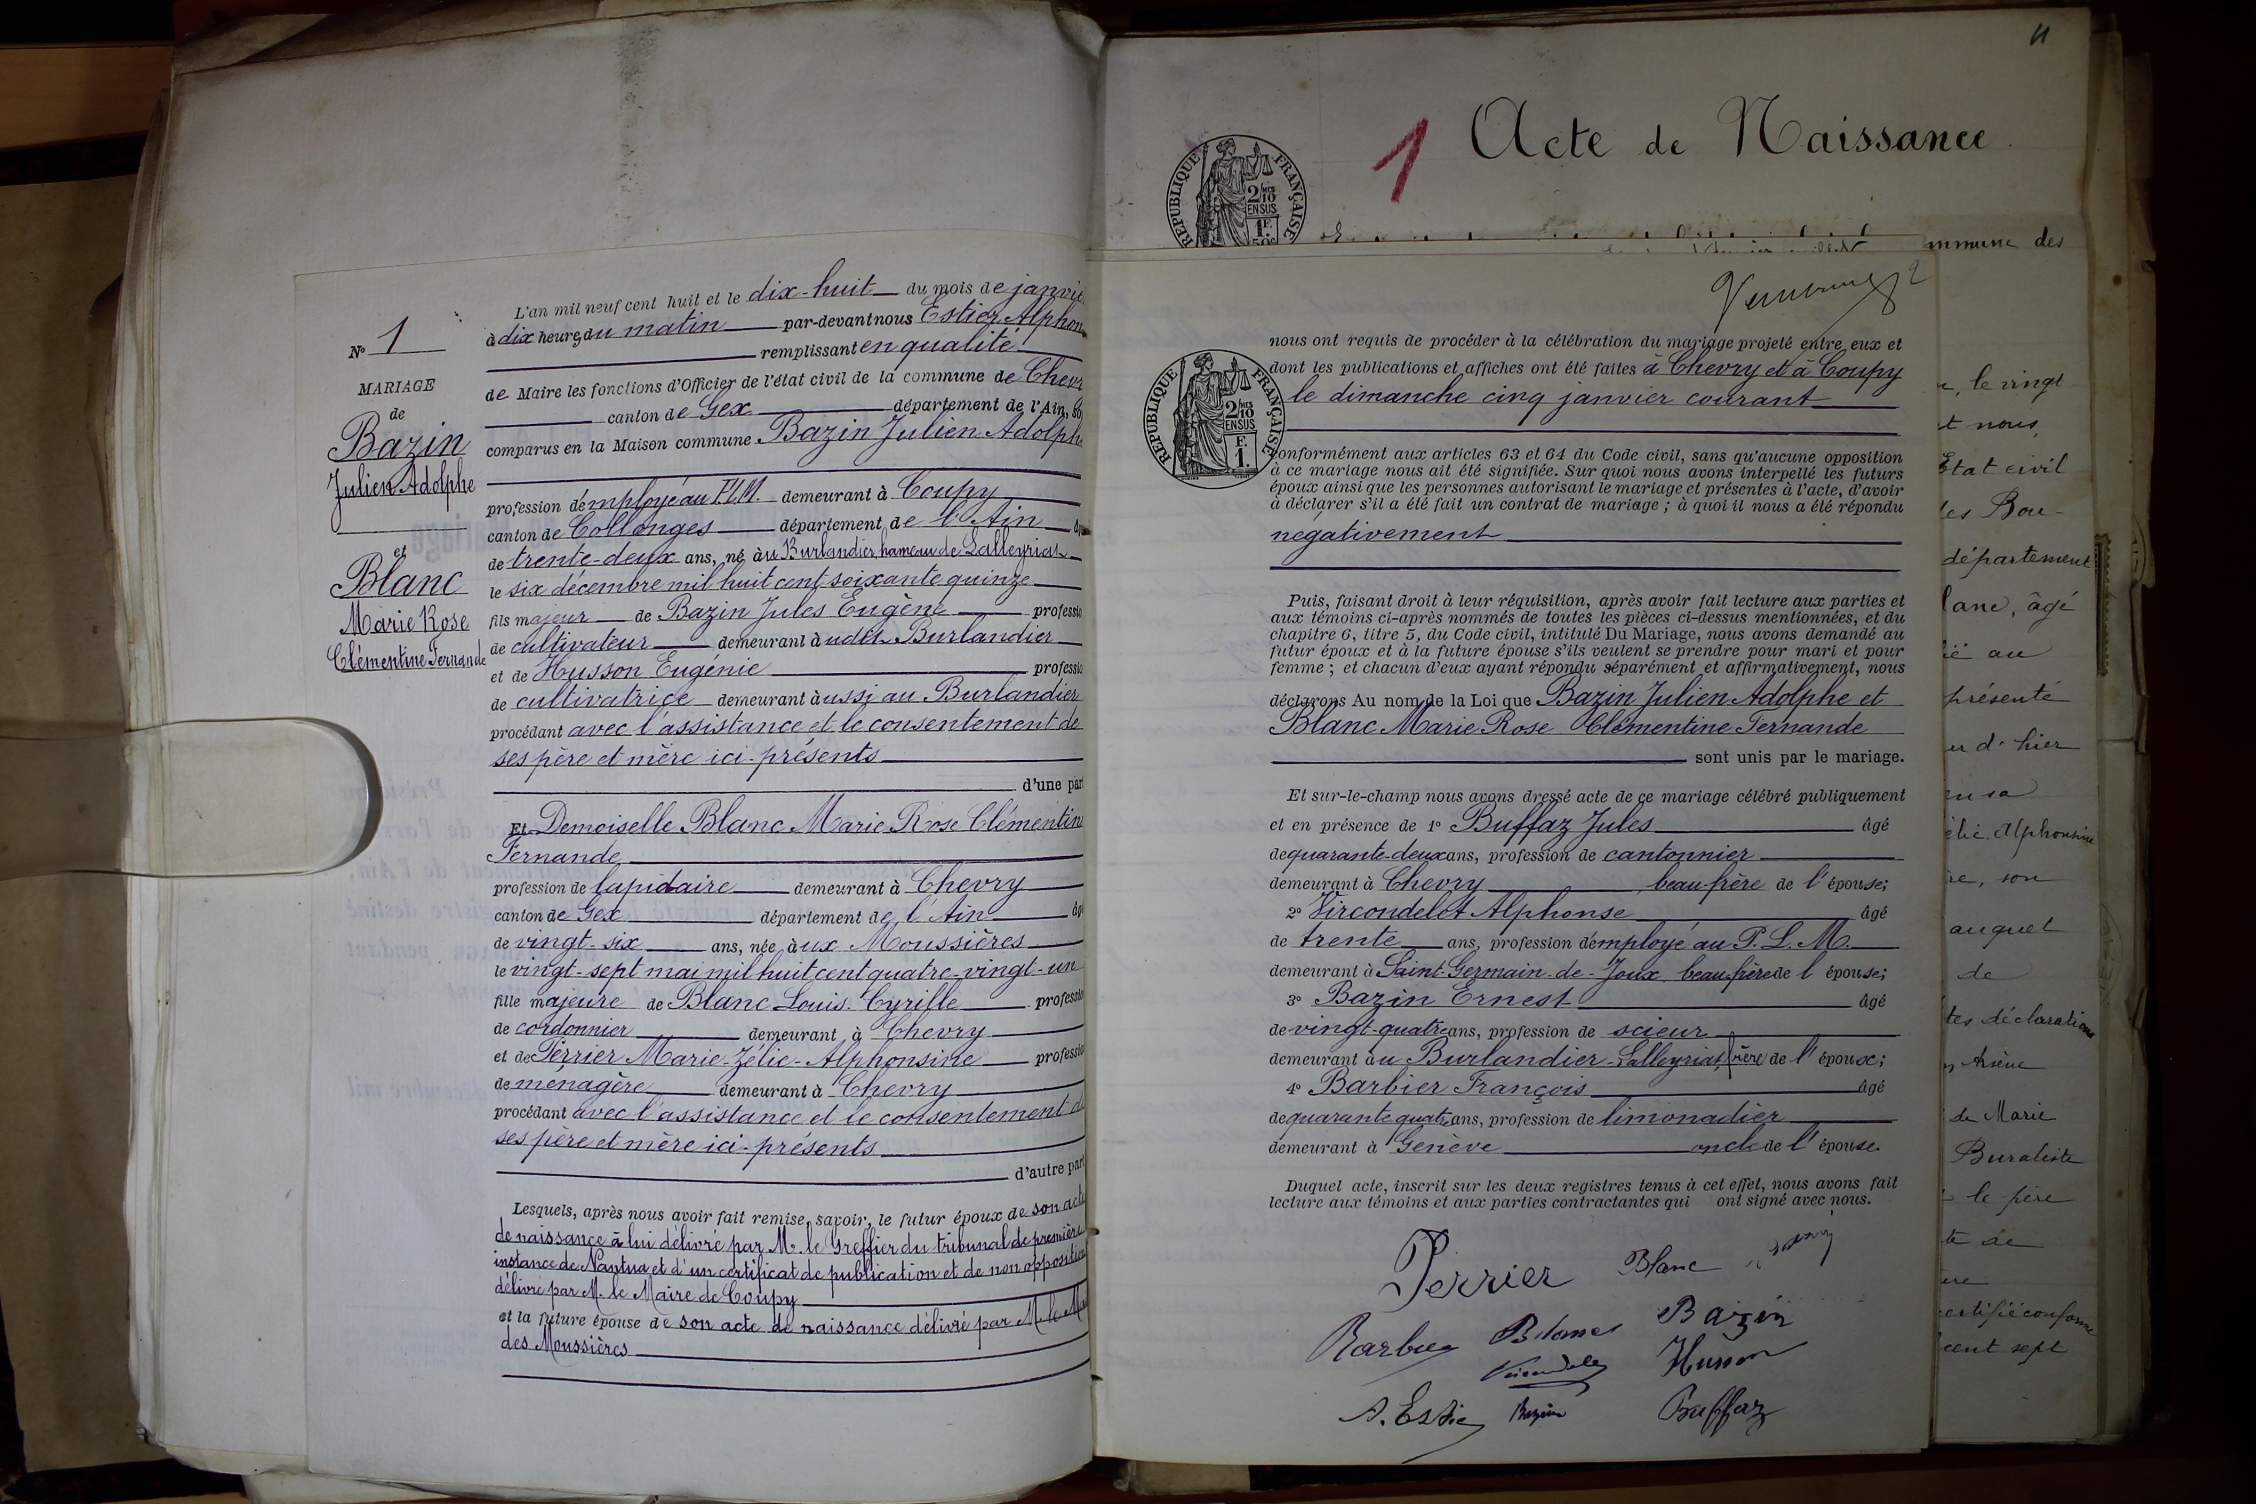 N° 1
MARIAGE
de
Bazin
Julien Adolphe
et
Blanc
Marie Rose
Clémentine Fernande
L'an mil neuf cent huit et le dix-huit du mois de janvie
à dix heures du matin par-devant nous Estier Alphon
remplissant en qualité
de Maire les fonctions d'Officier de l'état civil de la commune de Chevr
canton de Gex département de l'Ain,
comparus en la Maison commune Bazin Julien Adolphe
profession d'employé au P.L.M. demeurant à Coupy
canton de Collonges département de l'Ain
de trente-deux ans, né au Burlandier hameau de Lalleyriat
le six décembre mil huit cent soixante quinze
fils majeur de Bazin Jules Eugène professio
de cultivateur demeurant à udit Burlandier
et de Husson Eugénie professio
de cultivatrice demeurant à ussi au Burlandier
procédant avec l'assistance et le consentement de
ses père et mère ici-présents
d'une part
Et Demoiselle Blanc Marie Rose Clémentine
Fernande
profession de lapidaire demeurant à Chevry
canton de Gex département de l'Ain âg
de vingt-six ans, née à ux Moussières
le vingt-sept mai mil huit cent quatre-vingt-un
fille majeure de Blanc Louis Cyrille professio
de cordonnier demeurant à Chevry
et de Perrier Marie-Zélie-Alphonsine professio
de ménagère demeurant à Chevry
procédant avec l'assistance et le consentement de
ses père et mère ici-présents
d'autre part
Lesquels, après nous avoir fait remise, savoir, le futur époux de son acte
de naissance à lui délivré par M. le Greffier du tribunal de première
instance de Nantua et d'un certificat de publication et de non opposition
délivré par M. le Maire de Coupy
et la future épouse de son acte de naissance délivré par M. le Mai
des Moussières
1 Acte de Naissance
RÉPUBLIQUE FRANÇAISE
2/10 EN SUS
1F.
50c
mmune des
2
nous ont requis de procéder à la célébration du mariage projeté entre eux et
dont les publications et affiches ont été faites à Chevry et à Coupy
le dimanche cinq janvier courant
RÉPUBLIQUE FRANÇAISE
2/10 EN SUS
F.
1.
conformément aux articles 63 et 64 du Code civil, sans qu'aucune opposition
à ce mariage nous ait été signifiée. Sur quoi nous avons interpellé les futurs
époux ainsi que les personnes autorisant le mariage et présentes à l'acte, d'avoir
à déclarer s'il a été fait un contrat de mariage ; à quoi il nous a été répondu
négativement
Puis, faisant droit à leur réquisition, après avoir fait lecture aux parties et
aux témoins ci-après nommés de toutes les pièces ci-dessus mentionnées, et du
chapitre 6, titre 5, du Code civil, intitulé Du Mariage, nous avons demandé au
futur époux et à la future épouse s'ils veulent se prendre pour mari et pour
femme ; et chacun d'eux ayant répondu séparément et affirmativement, nous
déclarons Au nom de la Loi que Bazin Julien Adolphe et
Blanc Marie Rose Clémentine Fernande
sont unis par le mariage.
Et sur-le-champ nous avons dressé acte de ce mariage célébré publiquement
et en présence de 1° Buffaz Jules âgé
de quarante-deux ans, profession de cantonnier
demeurant à Chevry beau-frère de l'épouse;
2° Vircondelet Alphonse âgé
de trente ans, profession d'employé au P. L. M.
demeurant à Saint-Germain-de-Joux, beau-frère de l'épouse;
3° Bazin Ernest âgé
de vingt-quatre ans, profession de scieur
demeurant à u Burlandier-Lalleyriat, frère de l'époux;
4° Barbier François âgé
de quarante quatre ans, profession de limonadier
demeurant à Genève oncle de l'épouse.
Duquel acte, inscrit sur les deux registres tenus à cet effet, nous avons fait
lecture aux témoins et aux parties contractantes qui ont signé avec nous.
Perrier Blanc
Barbier Blanc Bazin
Husson
A. Estier Bazin Buffaz
, le vingt
t nous,
État civil
les Bou-
département
lanc, âgé
ié au
présenté
ur d'hier
en sa
élie Alphonsine
re, son
auquel
de
tes déclarations
de Marie
Buraliste
le père
te de
ertifié conforme
cent sept